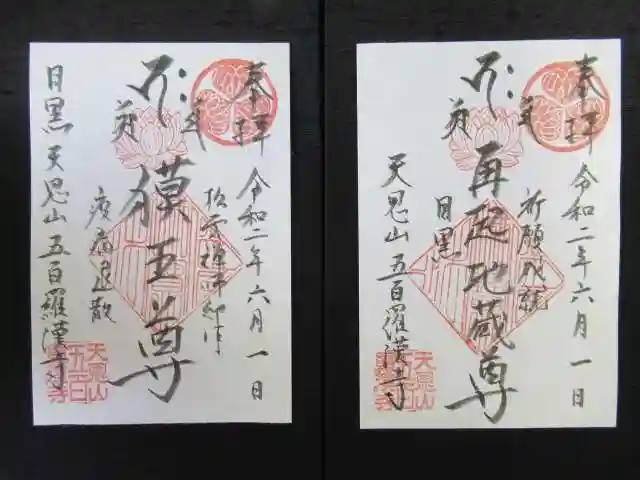 奉拝
令和二年六月一日
松雲禅師御作
獏王尊
疫病退散
目黒 天恩山 五百羅漢寺
天恩山
五百
羅漢寺
奉拝
令和二年六月一日
祈願成就
再起地蔵尊
目黒
天恩山 五百羅漢寺
天恩山
五百
羅漢寺